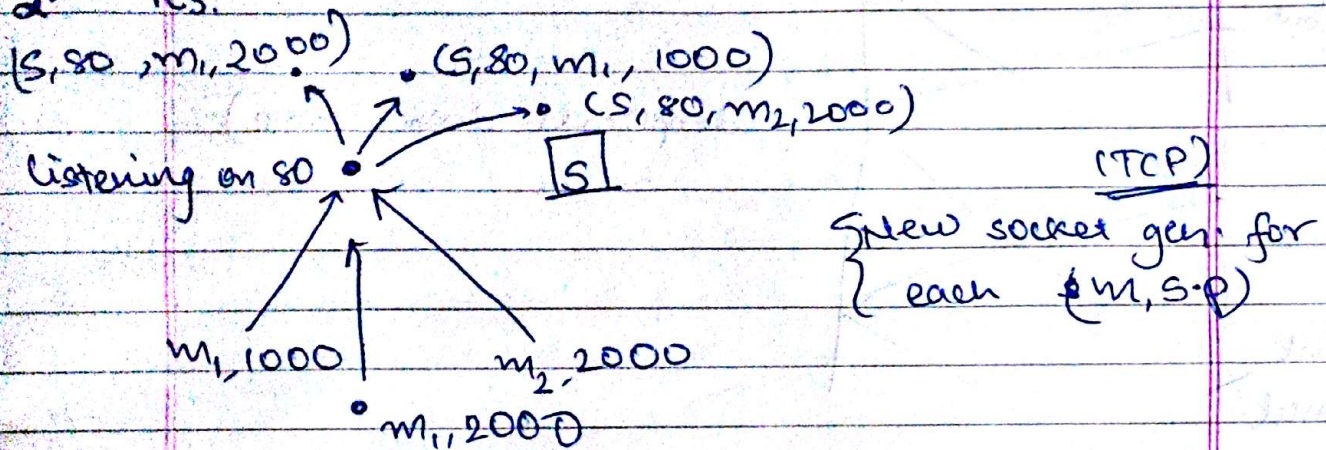 (S,80,m1,2000) . (S,80,m1, 1000)
(S,80,m2,2000)
listening on 80 S (TCP)
New socket gen. for
each (m, s.p)
m1,1000 m2,2000
m1,2000